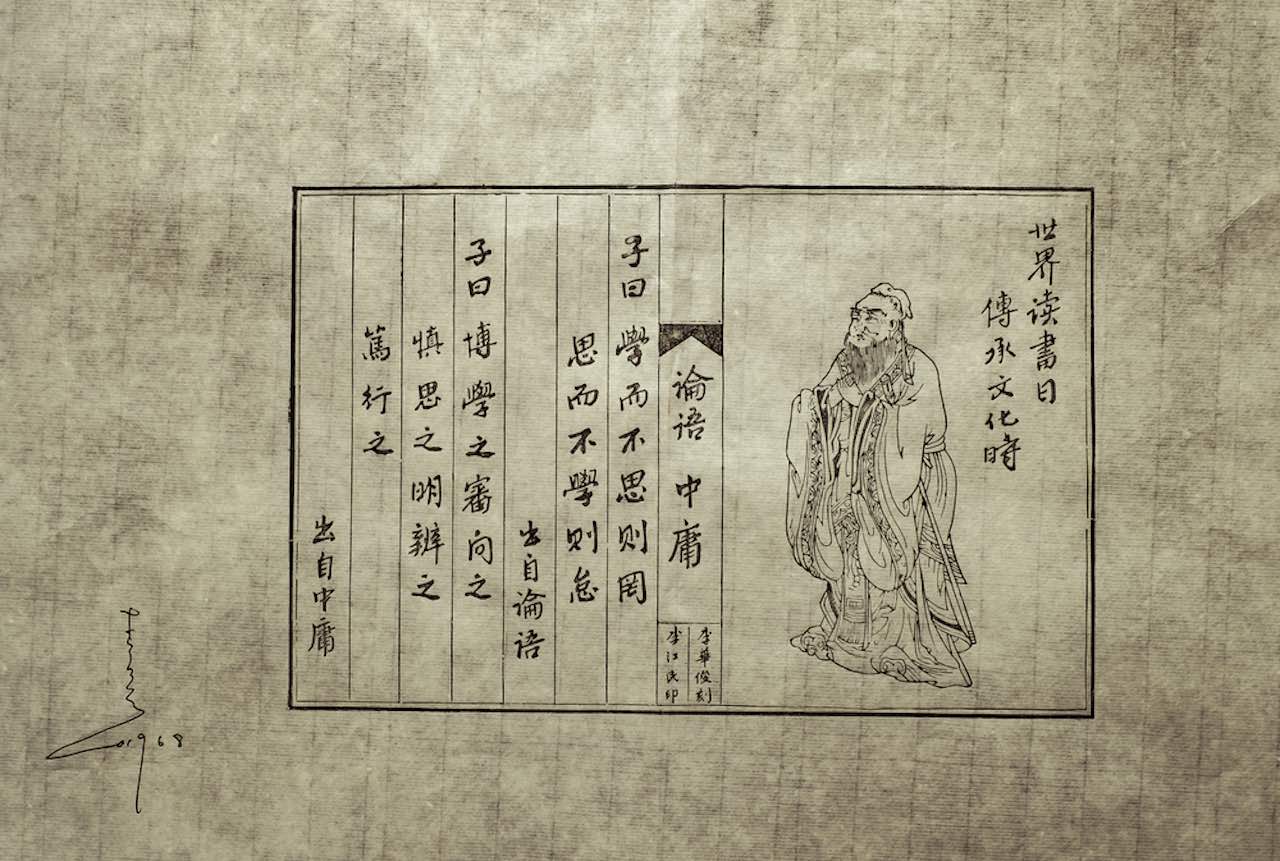 世界读書日
傳承文化時
論語 中庸
李華俊刻
李江民印
子曰 學而不思則罔
思而不學則怠
出自論語
子曰 博學之審向之
慎思之明辨之
篤行之
出自中庸